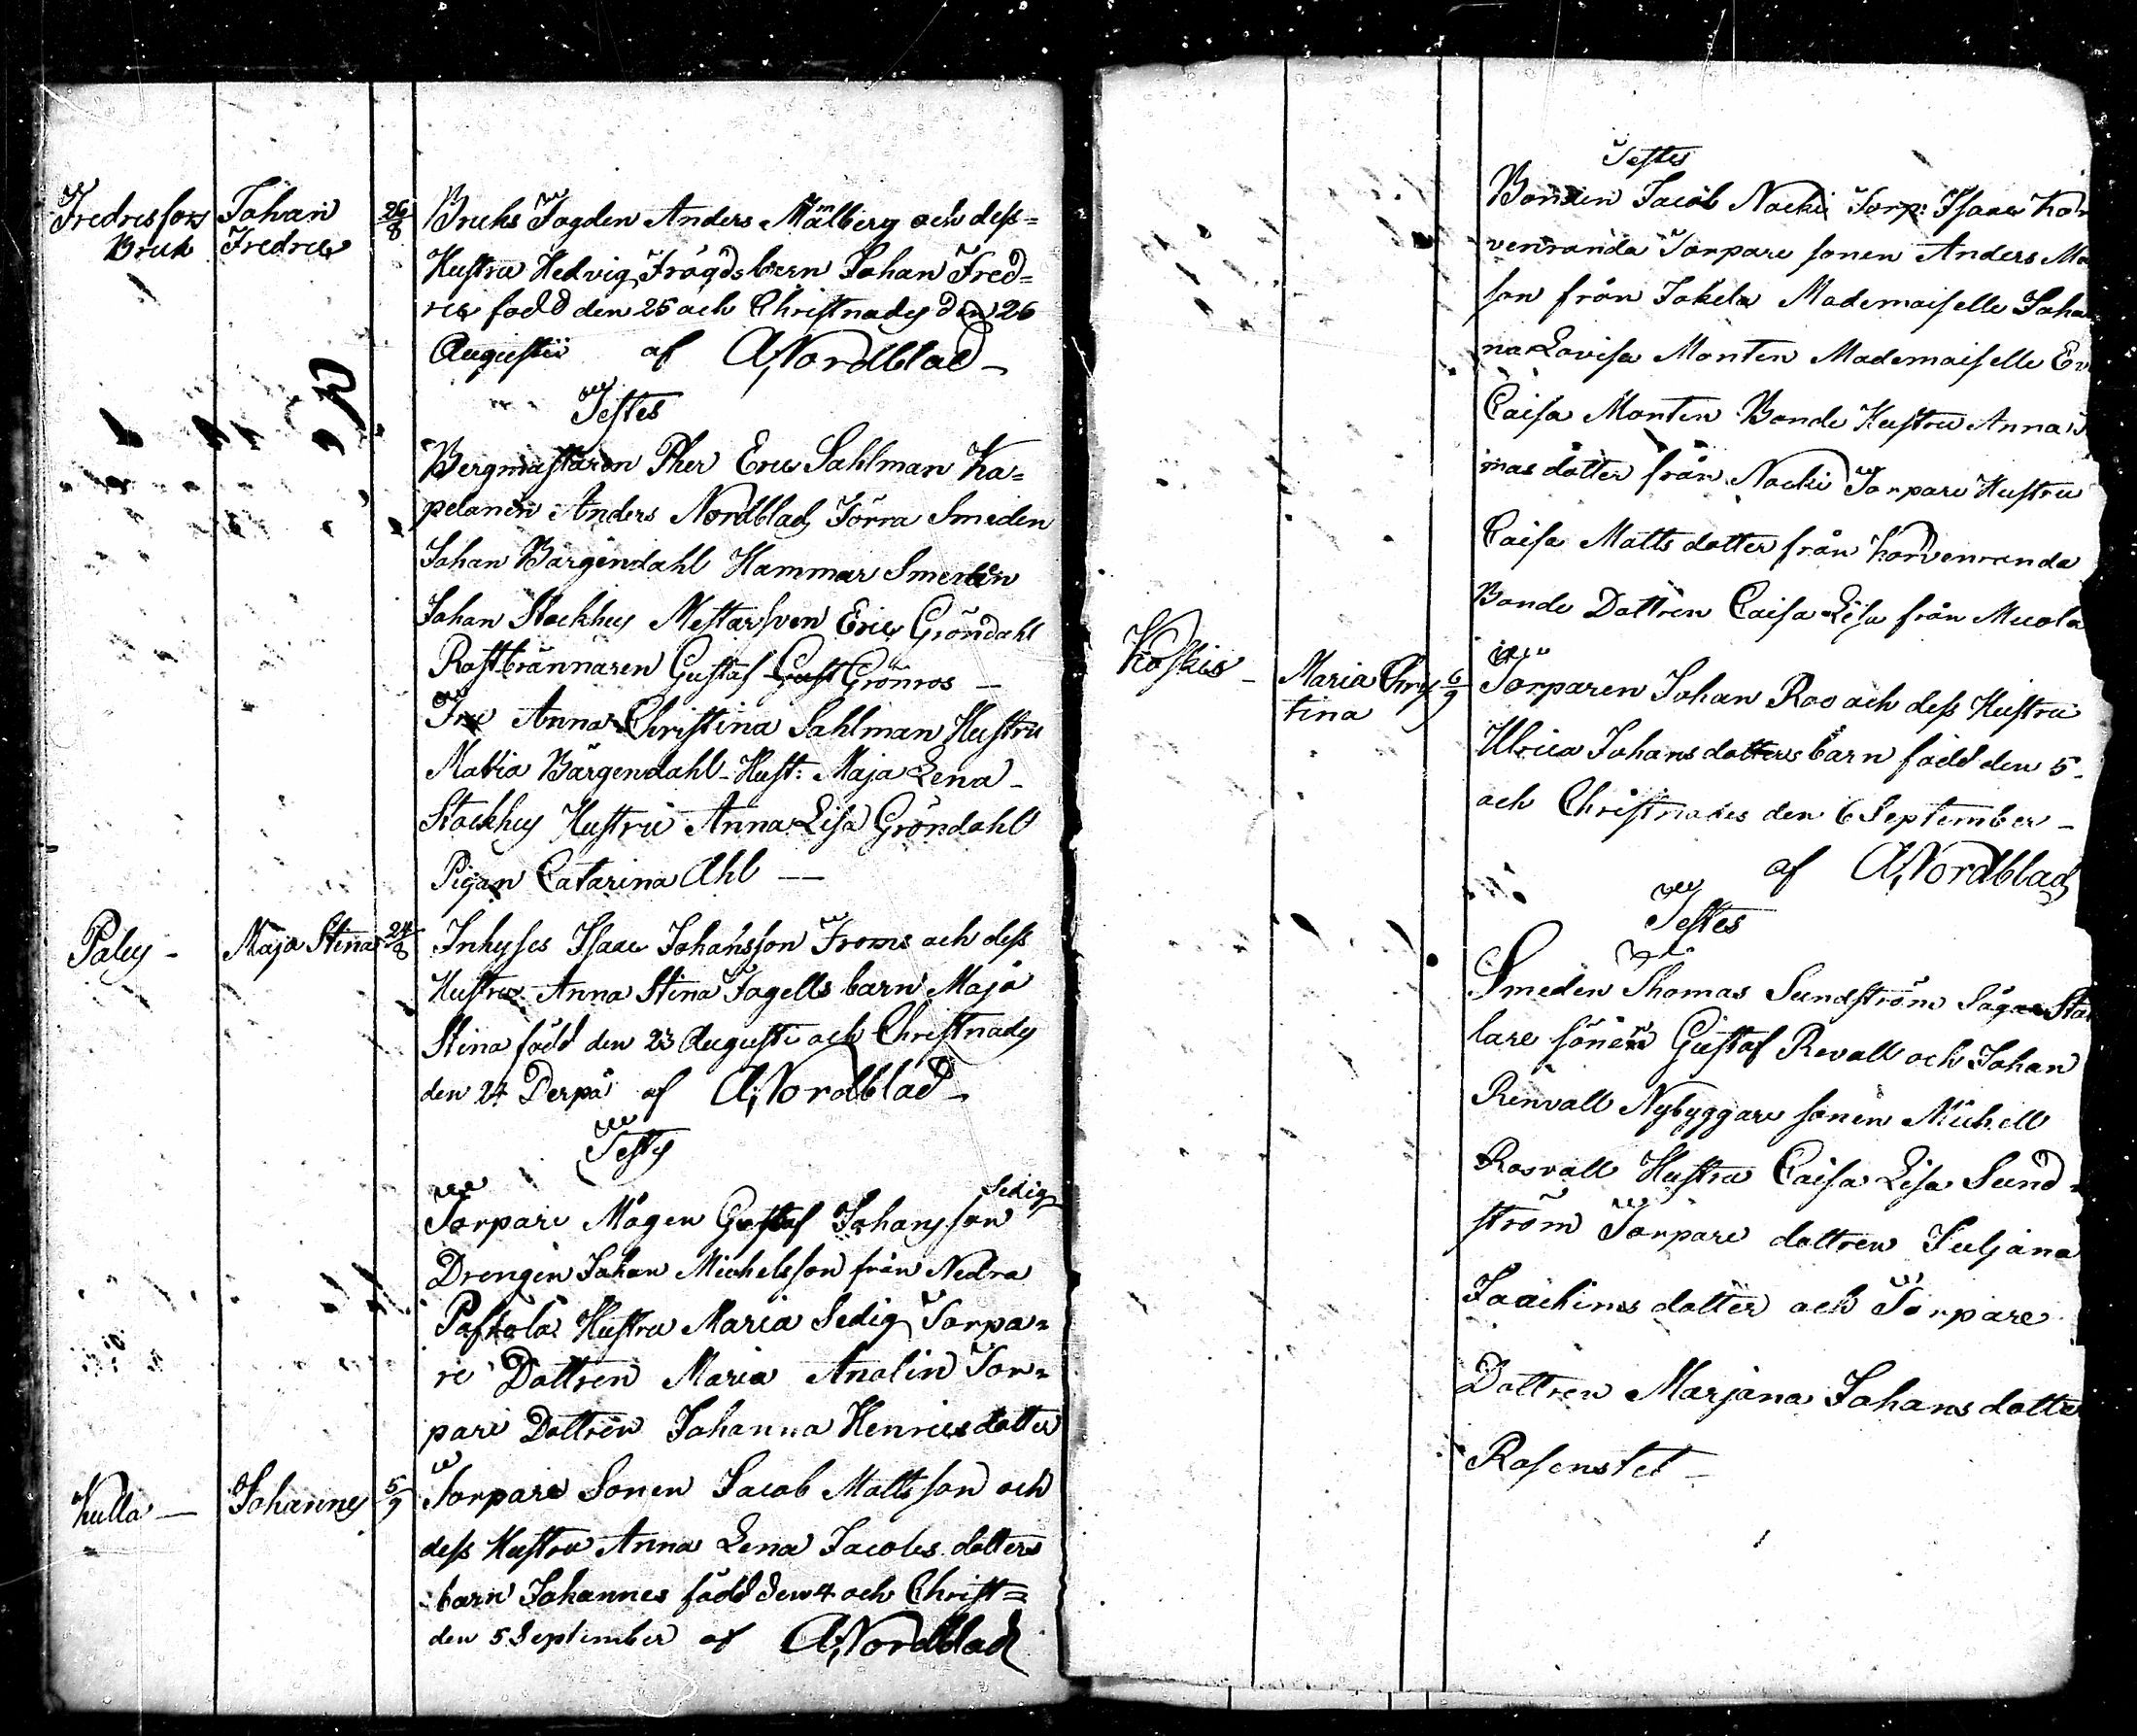 Fredricsfors
Bruk
Johan
Fredric
26/8
Bruks Fogden Anders Malberg och dess=
Hustru Hedvig Frögds barn Johan Fred=
ric född den 25 och Christnades den 26
Augusti af A, Nordblad
Testes
Bergmästaren Pher Eric Sahlman Ka=
pelanen Anders Nordblad Förra Smeden
Johan Bärgendahl Hammar Smeden
Johan Stockhus Mestarsven Eric Gröndahl
Rostbrännaren Gustaf Gust Grönros
Fru Anna Christina Sahlman Hustru
Maria Bärgendahl Hust: Maja Lena
Stockhus Hustru Anna Lisa Gröndahl
Pigan Catarina Ahl
Palus
Maja Stina
24/8
Inhyses Isaac Johansson Froms och dess
Hustru Anna Stina Fagells barn Maja
Stina född den 23 Augusti och Christnades
den 24 Derpå af A, Nordblad
Testes
Torpare Mågen Gustaf Johansson Sedig
Drengen Johan Michelsson från Nedra
Paskola Hustru Maria Sedig Torpa=
re Dottren Maria Analin Tor=
pare Dottren Johanna Henricsdotter
Kulla
Johannes
5/9
Torpare Sonen Jacob Mattsson och
dess Hustru Anna Lena Jacobs dotters
barn Johannes född den 4 och Christ=
den 5 September af A, Nordblad
Testes
Bonden Jacob Nacki Torp: Isaac Kor
venranda Torpare sonen Anders
son från Jokela Mademoiselle Johan
na Lovisa Monten Mademoiselle
Caisa Monten Bonde Hustru Anna
mas dotter från Nacki Torpare Hustru
Caisa Matts dotter från Korvenranda
Bonde Dottren Caisa Lisa från Mucola
Koskis
Maria Chris
tina
6/9
Torparen Johan Roo och dess Hustru
Ulrica Johans dotters barn född den 5
och Christnades den 6 September
af A, Nordblad
Testes
Smeden Thomas Sundström Sågar Stäl
lare sönen Gustaf Revall och Johan
Renvall Nybyggare sonen Michell
Rosvall Hustru Caisa Lisa Sund=
ström Torpare dottren Juljana
Joachims dotter och Torpare
Dottren Marjana Johans dotter
Rosenstet